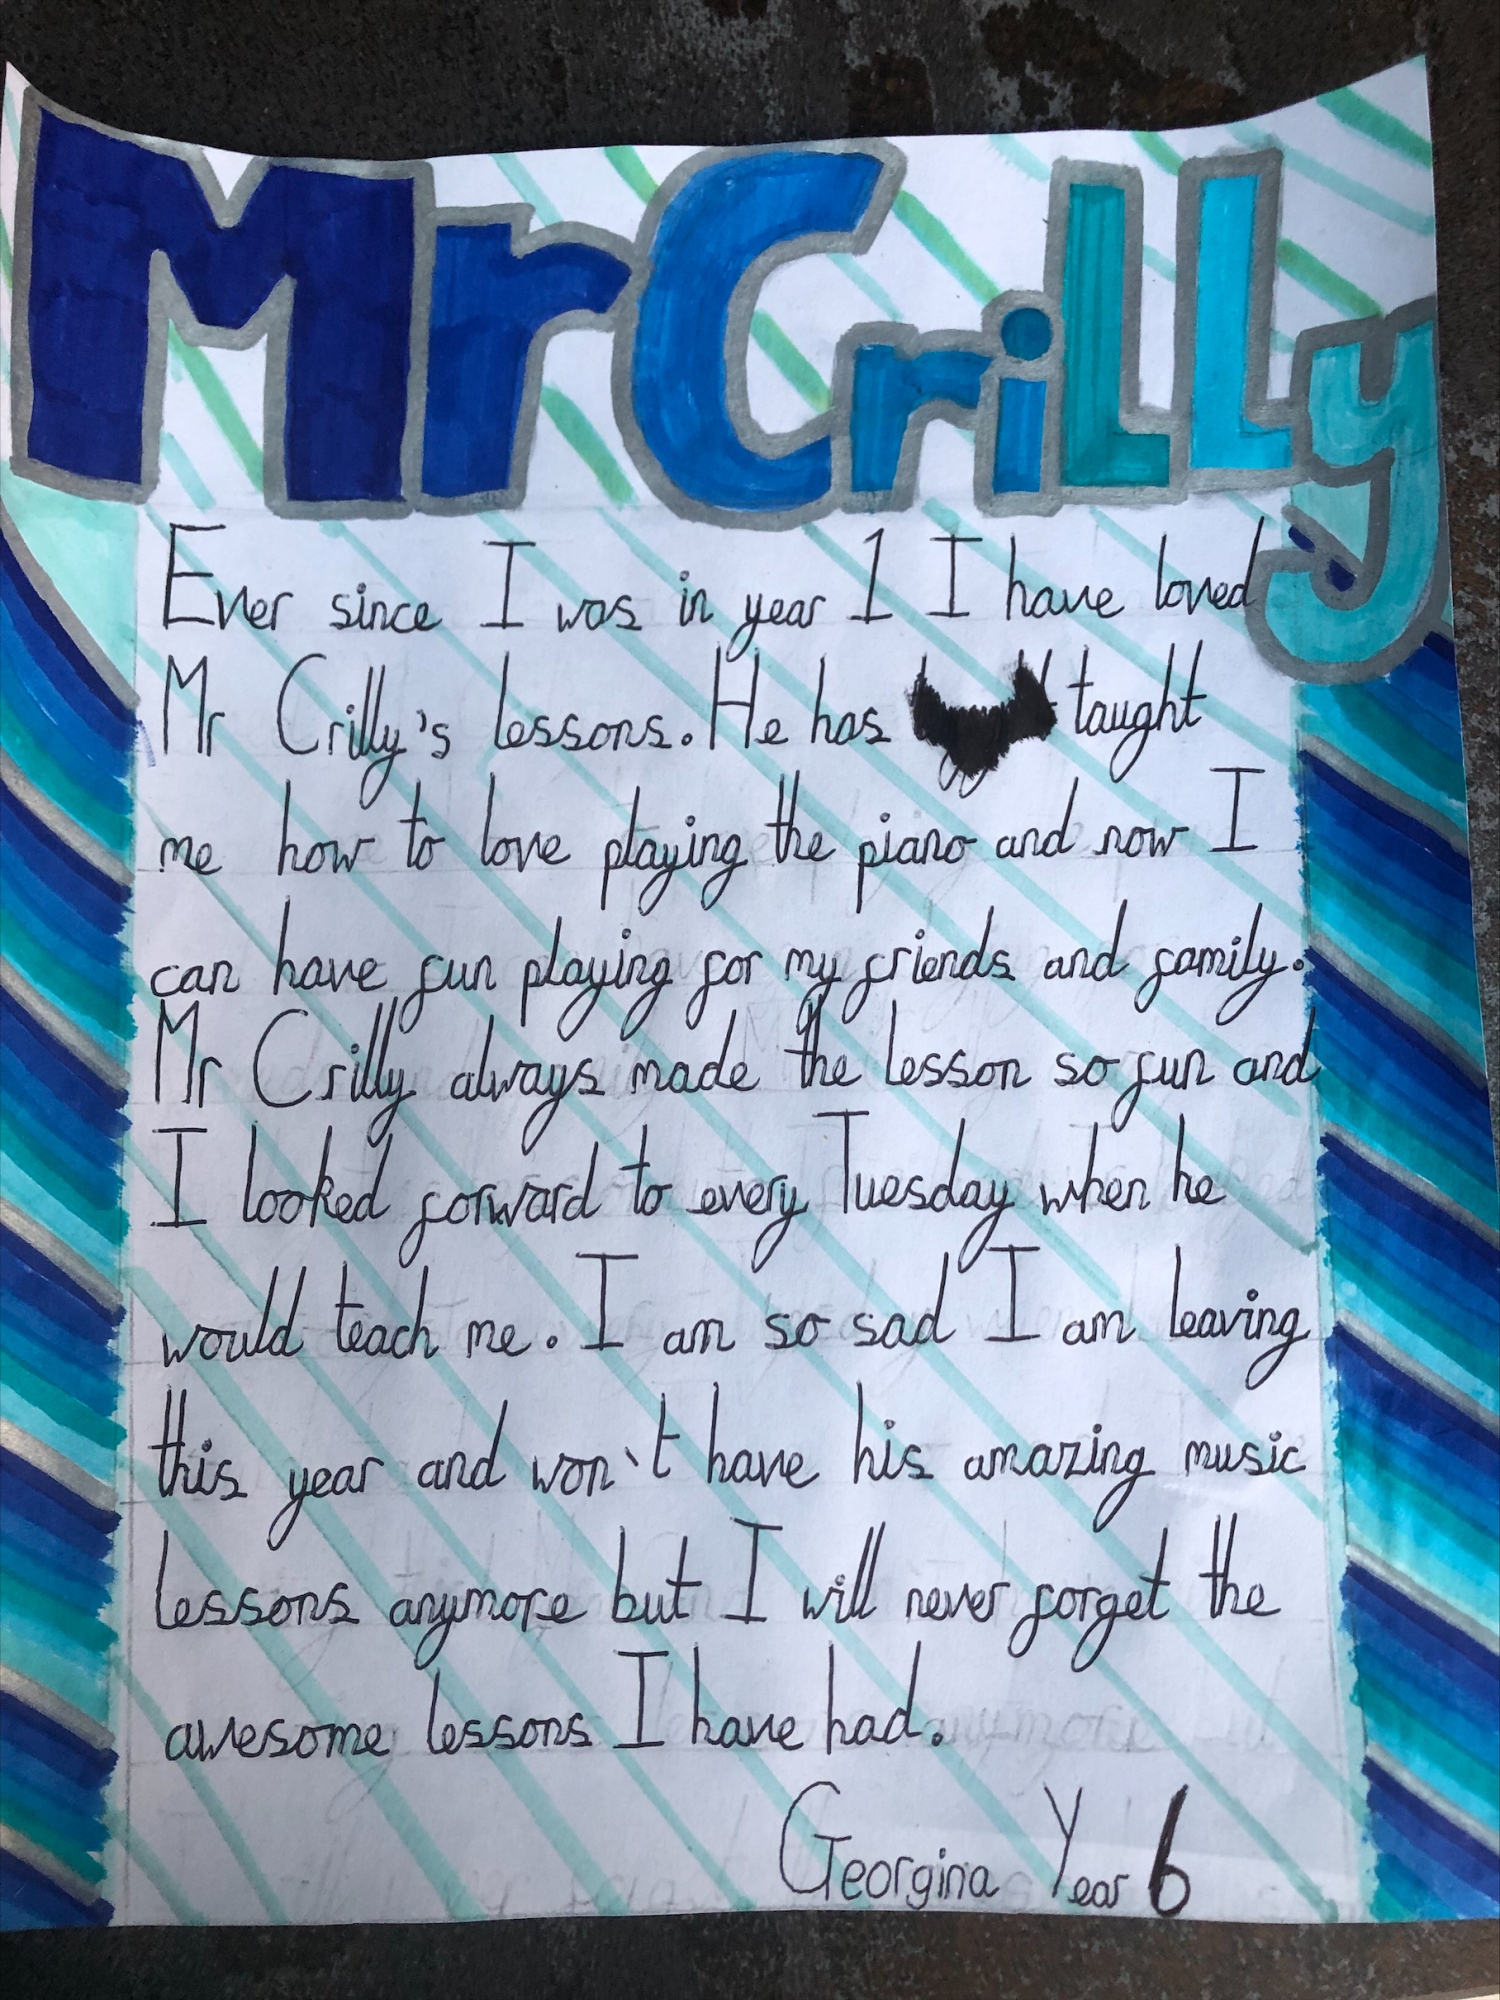 Mr Crilly
Ever since I was in year 1 I have loved
Mr Crilly's lessons. He has taught
me how to love playing the piano and now I
can have fun playing for my friends and family.
Mr Crilly always made the lesson so fun and
I looked forward to every Tuesday when he
would teach me. I am so sad I am leaving
this year and won't have his amazing music
lessons anymore but I will never forget the
awesome lessons I have had.
Georgina Year 6